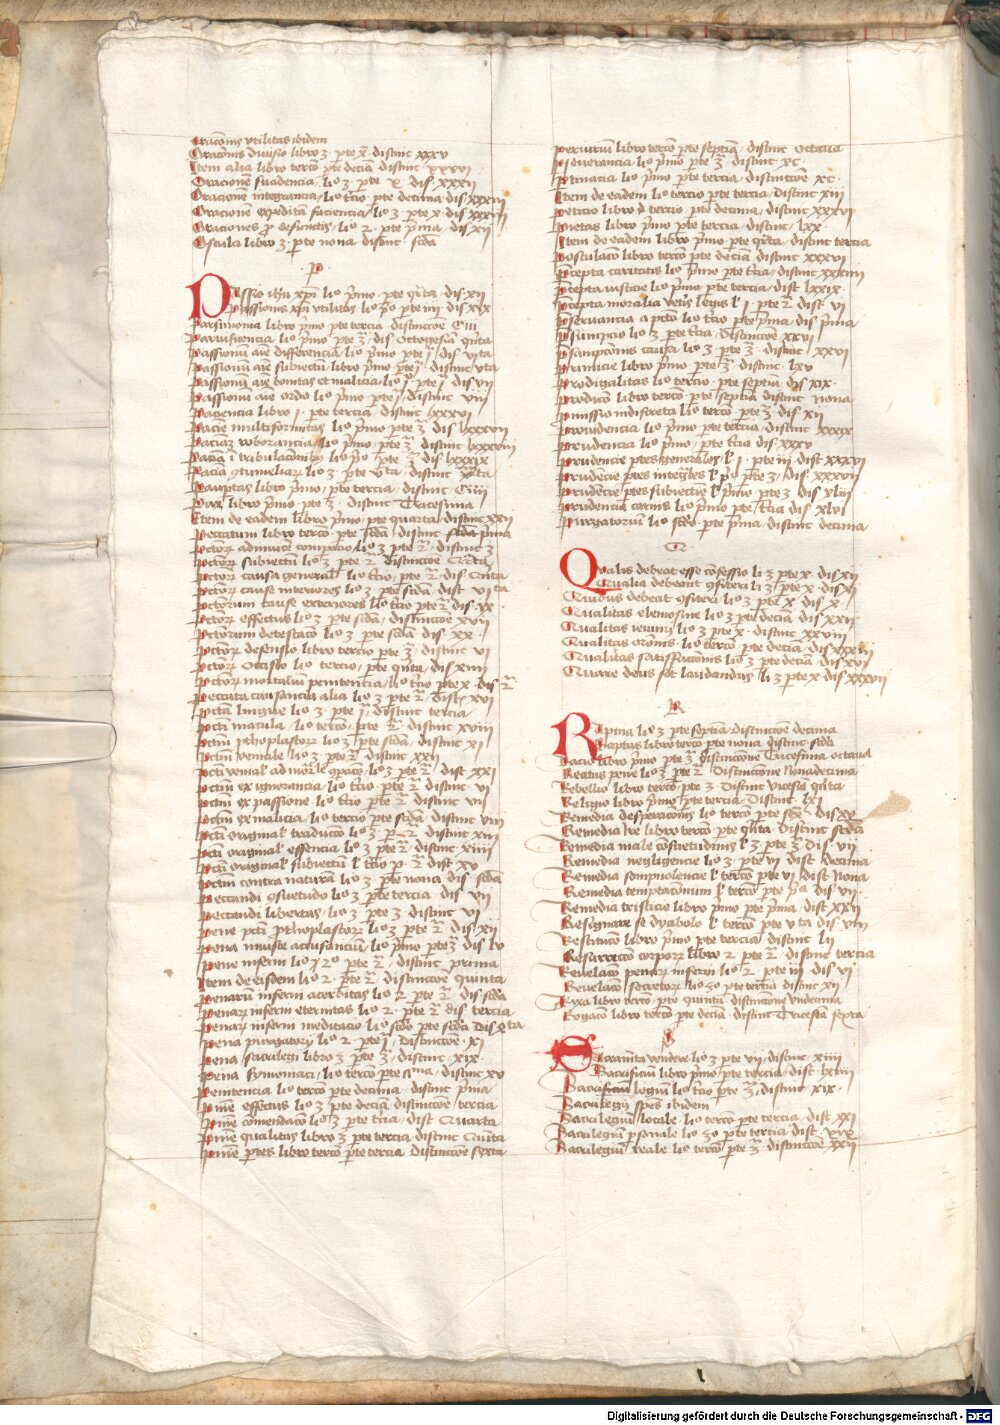 Oracionis utilitas ibidem
Oracionis divisio libro 3 pte x distinc xxxv
Item alia libro tercio pte decima distinc xxxvi
Oracionem suadencia lio 3 pte x dis xxxii
Oracionem integrancia lio tercio pte decima dis
Oracionem expeditam faciencia lio 3 pte x dis
Oraciones pro defunctis lio 2 pte prima dis xii
Oscula libro 3 pte nona distinc scda
P
Passio ihu xpi lio primo pte quarta dis xii
Passionis xpi utilitas lio pte iii dis xix
Parsimonia libro primo pte tercia distinctione Ciii
Parvificencia lio primo pte 3 dis Octogesima quinta
Passionum aie differencia lio primo pte i dis vi ta
Passionum aie subiectum libro primo pte i distinc v ta
Passionum aie bonitas et malicia lio pte i dis vii
Passionum aie ordo lio primo pte i dis viii
Paciencia libro i pte tercia distinc lxxxvi
Pacie multiformitas lio primo pte 3 dis lxxxvii
Paciam roborancia lio primo pte 3 distinc lxxxviii
Paciam i tribulacionibus lio pte 3 dis lxxxix
lio 3 pte distinc
Paupertas libro primo pte tercia distinc Ciiii
Pax libro primo pte 3 distinc Tricesima
Item de eadem libro primo pte quarta distinc xxii
Peccatum libro tercio pte scda distinc prima
Pctorum adinvicem comparacio lio 3 pte 2 distinc 3
Pctorum subiectum lio 3 pte 2 distinctione Quarta
Pctorum causa generalis lio tercio pte 2 dis Quinta
Pctorum cause interiores lio 3 pte scda dist vi ta
Pctorum cause exteriores lio tercio pte 2 dis xx
Pctorum effectus lio 3 pte scda distinctione xvii
Pctorum detestacio lio 3 pte scda dis xx
Pctorum defensio libro tercio pte 3 distinc vi
Pctorum occasio lio tercio pte quinta dis xiiii
Pctorum mortalium penitencia lio tercio pte x dis 2
Peccata causancia alia lio 3 pte 2 dist xvi
Pctum lingue lio 3 pte i distinc tercia
Pcti macula lio tercio pte 2 distinc xviii
Pctum pthoplastorum lio 3 pte scda distinc xi
Pctum veniale lio 3 pte 2 distinc xxii
Pcti venialis ad mortale comparacio lio 3 pte 2 dist xxi
Pctum ex ignorancia lio tercio pte 2 distinc vi
Pctum ex passione lio tercio pte 2 distinc vii
Pctum ex malicia lio tercio pte scda distinc viii
Pcti originalis traductio lio 3 p 2 distinc xiii
Pcti originalis essencia lio 3 pte 2 distinc xiiii
Pcti originalis subiectum l tercio p 2 dist xv
Pctum contra naturam lio 3 pte nona dis scda
Peccandi consuetudo lio 3 pte tercia dis vii
Peccandi libertas lio 3 pte 3 distinc vi
Pene pcti pthoplastorum lio 3 pte 2 dis xii
Pena iniuste accusancium lio primo pte 3 dis lv
Pene inferni lio 2o pte 2 distinc prima
Item de eisdem lio 2 pte 2 distinctione quinta
Penarum inferni acerbitas lio 2 pte 2 dis scda
Penarum inferni eternitas lio 2 pte 2 dis tercia
Penarum inferni meditacio lio scdo pte scda dis
Pena purgatorii lio 2 pte i distinctione xi
Pena sacrilegi libro 3 pte 3 distinc xix
Pena symoniaci lio tercio pte distinc xv
Penitencia lio tercio pte decima distinc prima
Pnie effectus lio 3 pte decima distinctione tercia
Pnie comendacio lio 3 pte tercia dist Quarta
Pnie qualitas libro 3 pte tercia distinc Quinta
Pnie ptes libro tercio pte tercia distinctione sexta
Periurium libro tercio pte septima distinc octava
Perseverancia lio primo pte 3 distinc xc
Pertinacia lio primo pte tercia distinctione xc
Item de eadem lio tercio pte tercia distinc xiii
Peticio libro tercio pte decima distinc xxxvi
Pietas libro primo pte tercia distinc lxx
Item de eadem libro primo pte quarta distinc tercia
Postulacio libro tercio pte decima distinc xxxvi
Pcepta caritatis lio primo pte tercia distinc xxxiiii
Pcepta iusticie lio primo pte tercia dist lxxix
Pcepta moralia veteris legis l i pte 2 dist vi
Pservancia a pcto lio tercio pte prima dis prima
Psumpcio lio 3 pte tercia distinctione xxvi
Psumpcionis causa lio 3 pte 3 distinc xxvi
Primicie libro primo pte 3 distinc lxv
Prodigalitas lio tercio pte septima dis xix
Prodicio libro tercio pte septima distinc nona
Pmissio indiscreta lio tercio pte 3 dis xii
Providencia lio primo pte tercia distinc xxxix
Prudencia lio primo pte tercia dis xxxv
Prudencie ptes generales l i pte iii dist xxxvi
Prudencie ptes integrales l pte 3 dis xxxvii
Prudencie ptes subiective l primo pte 3 dis xliii
Prudencia carnis lio primo pte tercia dis xlvi
Purgatorium lio scdo pte prima distinc decima
Q
Qualis debeat esse confessio li 3 pte x dis xii
Qualia debeant confiteri li 3 pte x dis xi
Quibus debeat confiteri lio 3 pte x dis x
Qualitas elemosine lio 3 pte decima dis xxxii
Qualitas ieiunii lio 3 pte x distinc xxviii
Qualitas oronis lio tercio pte decima dis
Qualitas satisfactionis lio 3 pte decima dis xvi
Quare deus sit laudandus li 3 pte x dis xxxvii
R
Rapina lio 3 pte septima distinctione decima
Raptus libro tercio pte nona distinc scda
Racio libro primo pte 3 distinctione Tricesima octava
Reatus pene lio 3 pte 2 distinctione Nonadecima
Rebellio libro tercio pte 3 distinc vicesima quinta
Religio libro primo pte tercia distinc lxi
Remedia desperacionis lio tercio pte sex dis xx
Remedia ire libro tercio pte quinta distinc scda
Remedia male consuetudinis l 3 pte 3 dis vii
Remedia negligencie lio 3 pte vi dist decima
Remedia sompnolencie l tercio pte vi dist Nona
Remedia temptacionum l tercio pte p a dis vii
Remedia tristicie libro primo pte prima dist xxvi
Resignare se dyabolo l tercio pte v ta dis viii
Restitucio libro primo pte tercia distinc lii
Resurrectio corporum libro 2 pte 2 distinc tercia
Revelacio penarum inferni lio 2 pte iii dis vi
Revelacio secretorum lio 3o pte tercia distinc xii
Rixa libro tercio pte quinta distinctione undecima
Rogacio libro tercio pte decima distinc Tricesima sexta
S
Sacramenta vendere lio 3 pte vii distinc xiiii
Sacrificium libro primo pte tercia dist lxiiii
Sacrificium legium lio tercio pte 3 distinc xix
Sacrilegii spes ibidem
Sacrilegium locale lio tercio pte tercia dist xxi
Sacrilegium psonale lio 3o pte tercia dist xix
Sacrilegium reale lio tercio pte 3 distinctione xxii
Digitalisierung gefördert durch die Deutsche Forschungsgemeinschaft - DFG